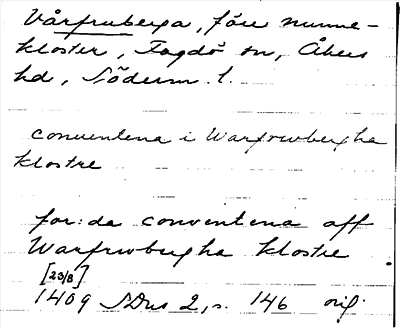 Vårfruberga, före nunne-
kloster, Fogdö sn, Åkers
hd, Söderm. l.
conventena i Warfrwbergha
klostre
for:da conventena aff
Warfrwbergha klostre
[23/8]
1409 SDns 2, s. 146 orig.